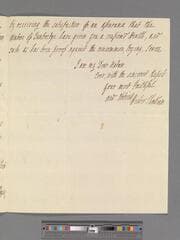 by receiving the satisfaction of an assurance that the
Waters of Tunbridge have given you a confirmed Health, and
such as has been proof against the uncommon, trying, Season
I am my Dear Madam
Ever, with the sincerest Respect
Your most faithful
and